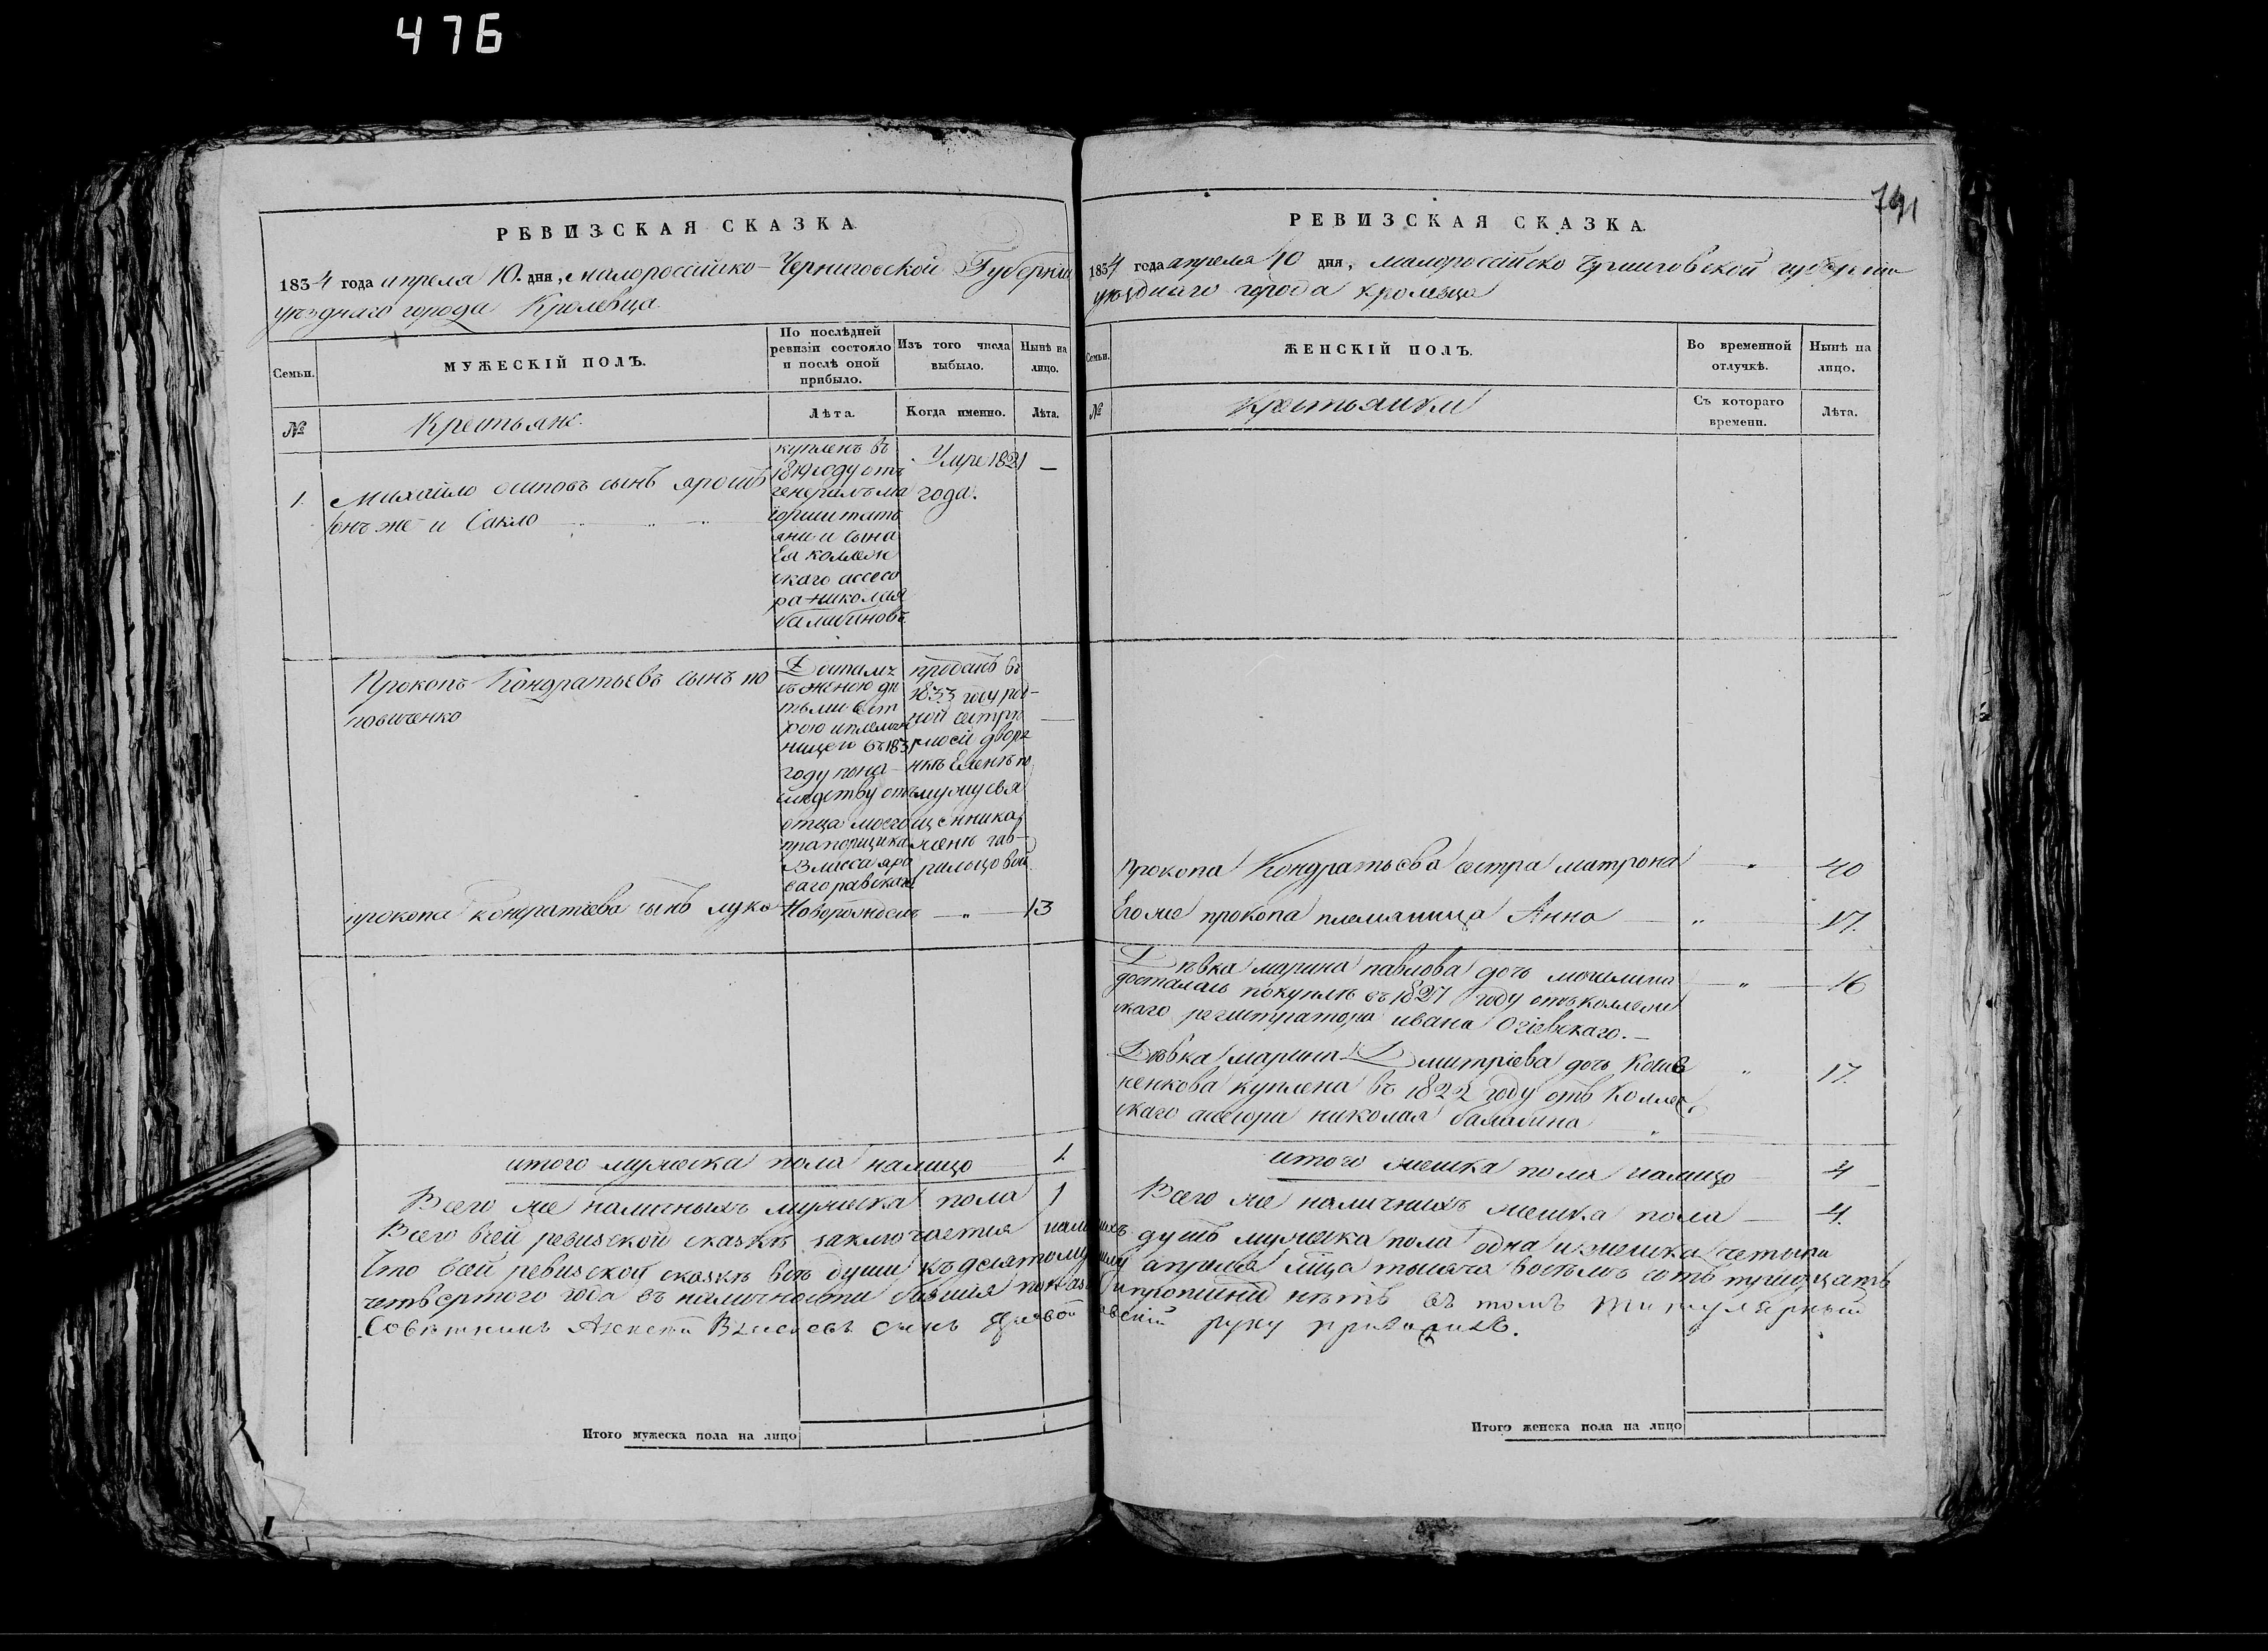 476
РЕВИЗСКАЯ СКАЗКА
1834 года апреля 10. дня, малороссійско-Черниговской Губерніи
уѣзднаго города Кролевца
Семьи.
МУЖЕСКІЙ ПОЛЪ.
По послѣдней ревизіи состояло и послѣ оной прибыло.
Изъ того числа выбыло.
Нынѣ на лицо.
№
Крестьяне.
Лѣта.
Когда именно.
Лѣта.
1.
Михайло осиповъ сынъ ярошъ
онъ же и Сакло
купленъ въ
1819 году отъ
генералъ ма
іорши тать
яни и сына
Ея коллеж
скаго ассесо
ра николая
балабиновъ
Умре 1821
года.
—
Прокопъ Кондратьевъ сынъ по
повиченко
Досталъ
съ женою дѣ
тьми сест
рою и племян
ницею въ 183
году по на
слѣдству отъ
отца моего
прапорщика
Власса яро
славскаго
проданъ въ
1833 году род-
ной сестрѣ
моей дворя
нкѣ Еленѣ по
мужу свя
щенника
женѣ гав-
рильцовой
—
прокопа кондратьева сынъ лука
Новорожденъ
— „ —
13
итого мужеска пола налицо
1.
Всего же наличныхъ мужеска пола
1
791
РЕВИЗСКАЯ СКАЗКА.
1834 года апреля 10 дня, малороссійско Черниговской губерніи
уѣзднаго города кролевца
Семьи.
ЖЕНСКІЙ ПОЛЪ.
Во временной отлучкѣ.
Нынѣ на лицо.
№
Крестьянки
Съ котораго времени.
Лѣта.
прокопа Кондратьева сестра матрона
„
40
Его же прокопа племяница Анна
„
17.
Дѣвка марина павлова дочь
досталась по купле въ 1827 году отъ коллеж
скаго регистратора ивана Огіевскаго.—
„
16
Дѣвка марина Дмитріева дочь
ненкова куплена въ 1822 году отъ Коллеж
скаго ассесора николая балабина
„
17.
итого женска пола налицо
4
Всего же наличныхъ женска пола
4.
Всего всей ревизской сказкѣ заключается наличныхъ душъ мужеска пола одна и женска четыри
Что всей ревизской сказкѣ всѣ души къ десятому числу апреля мѣсяца тысяча восемь сотъ тридцать
четвертого года въ наличности бывшія показаны и прописныхъ нѣтъ въ томъ титулярный
Совѣтникъ Алексѣй Власьевъ сынъ Яровой авскій руку приложилъ.
Итого мужеска пола на лицо
Итого женска пола на лицо